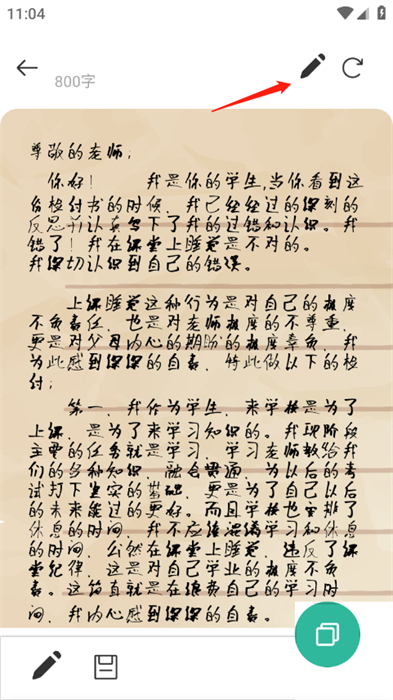 11:04
800字
尊敬的老师;
你好! 我是你的学生,当你看到这
份检讨书的时候,我已经经过的深刻的
反思并认真写下了我的过错和认识。我
错了!我在课堂上睡觉是不对的。
我深切认识到自己的错误。
上课睡觉这种行为是对自己的极度
不负责任,也是对老师极度的不尊重,
更是对父母内心的期盼的极度辜负,我
为此感到深深的自责,特此做以下的检
讨;
第一,我作为学生,来学校是为了
上课,是为了来学习知识的。我现阶段
主要的任务就是学习,学习老师教给我
们的各种知识,融会贯通,为以后的考
试打下坚实的基础,更是为了自己以后
的未来能过的更好。而且学校也安排了
休息的时间,我不应该混淆学习和休息
的时间,公然在课堂上睡觉,违反了课
堂纪律,这是对自己学业的极度不负
责。这简直就是在浪费自己的学习时
间,我内心感到深深的自责。